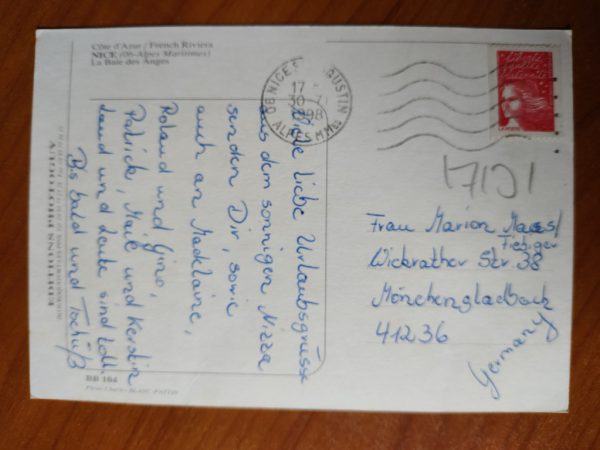 Côte d'Azur / French Riviera
NICE (06-Alpes Maritimes)
La Baie des Anges
liebe Urlaubsgrüsse
aus dem sonnigen Nizza
senden Dir sowie
auch an Madelaine,
Roland und Gino,
Patrick, Maik und Kerstin
Land und Leute sind toll.
Bis bald und Tschüß
06 NICE AUSTIN
17
30-7
1998
ALPES MMES
17101
Frau Marion Maess/
Fiebiger
Wickrather Str. 38
Mönchengladbach
41236
Germany
EDITIONS PHOTOGUY
BB 104